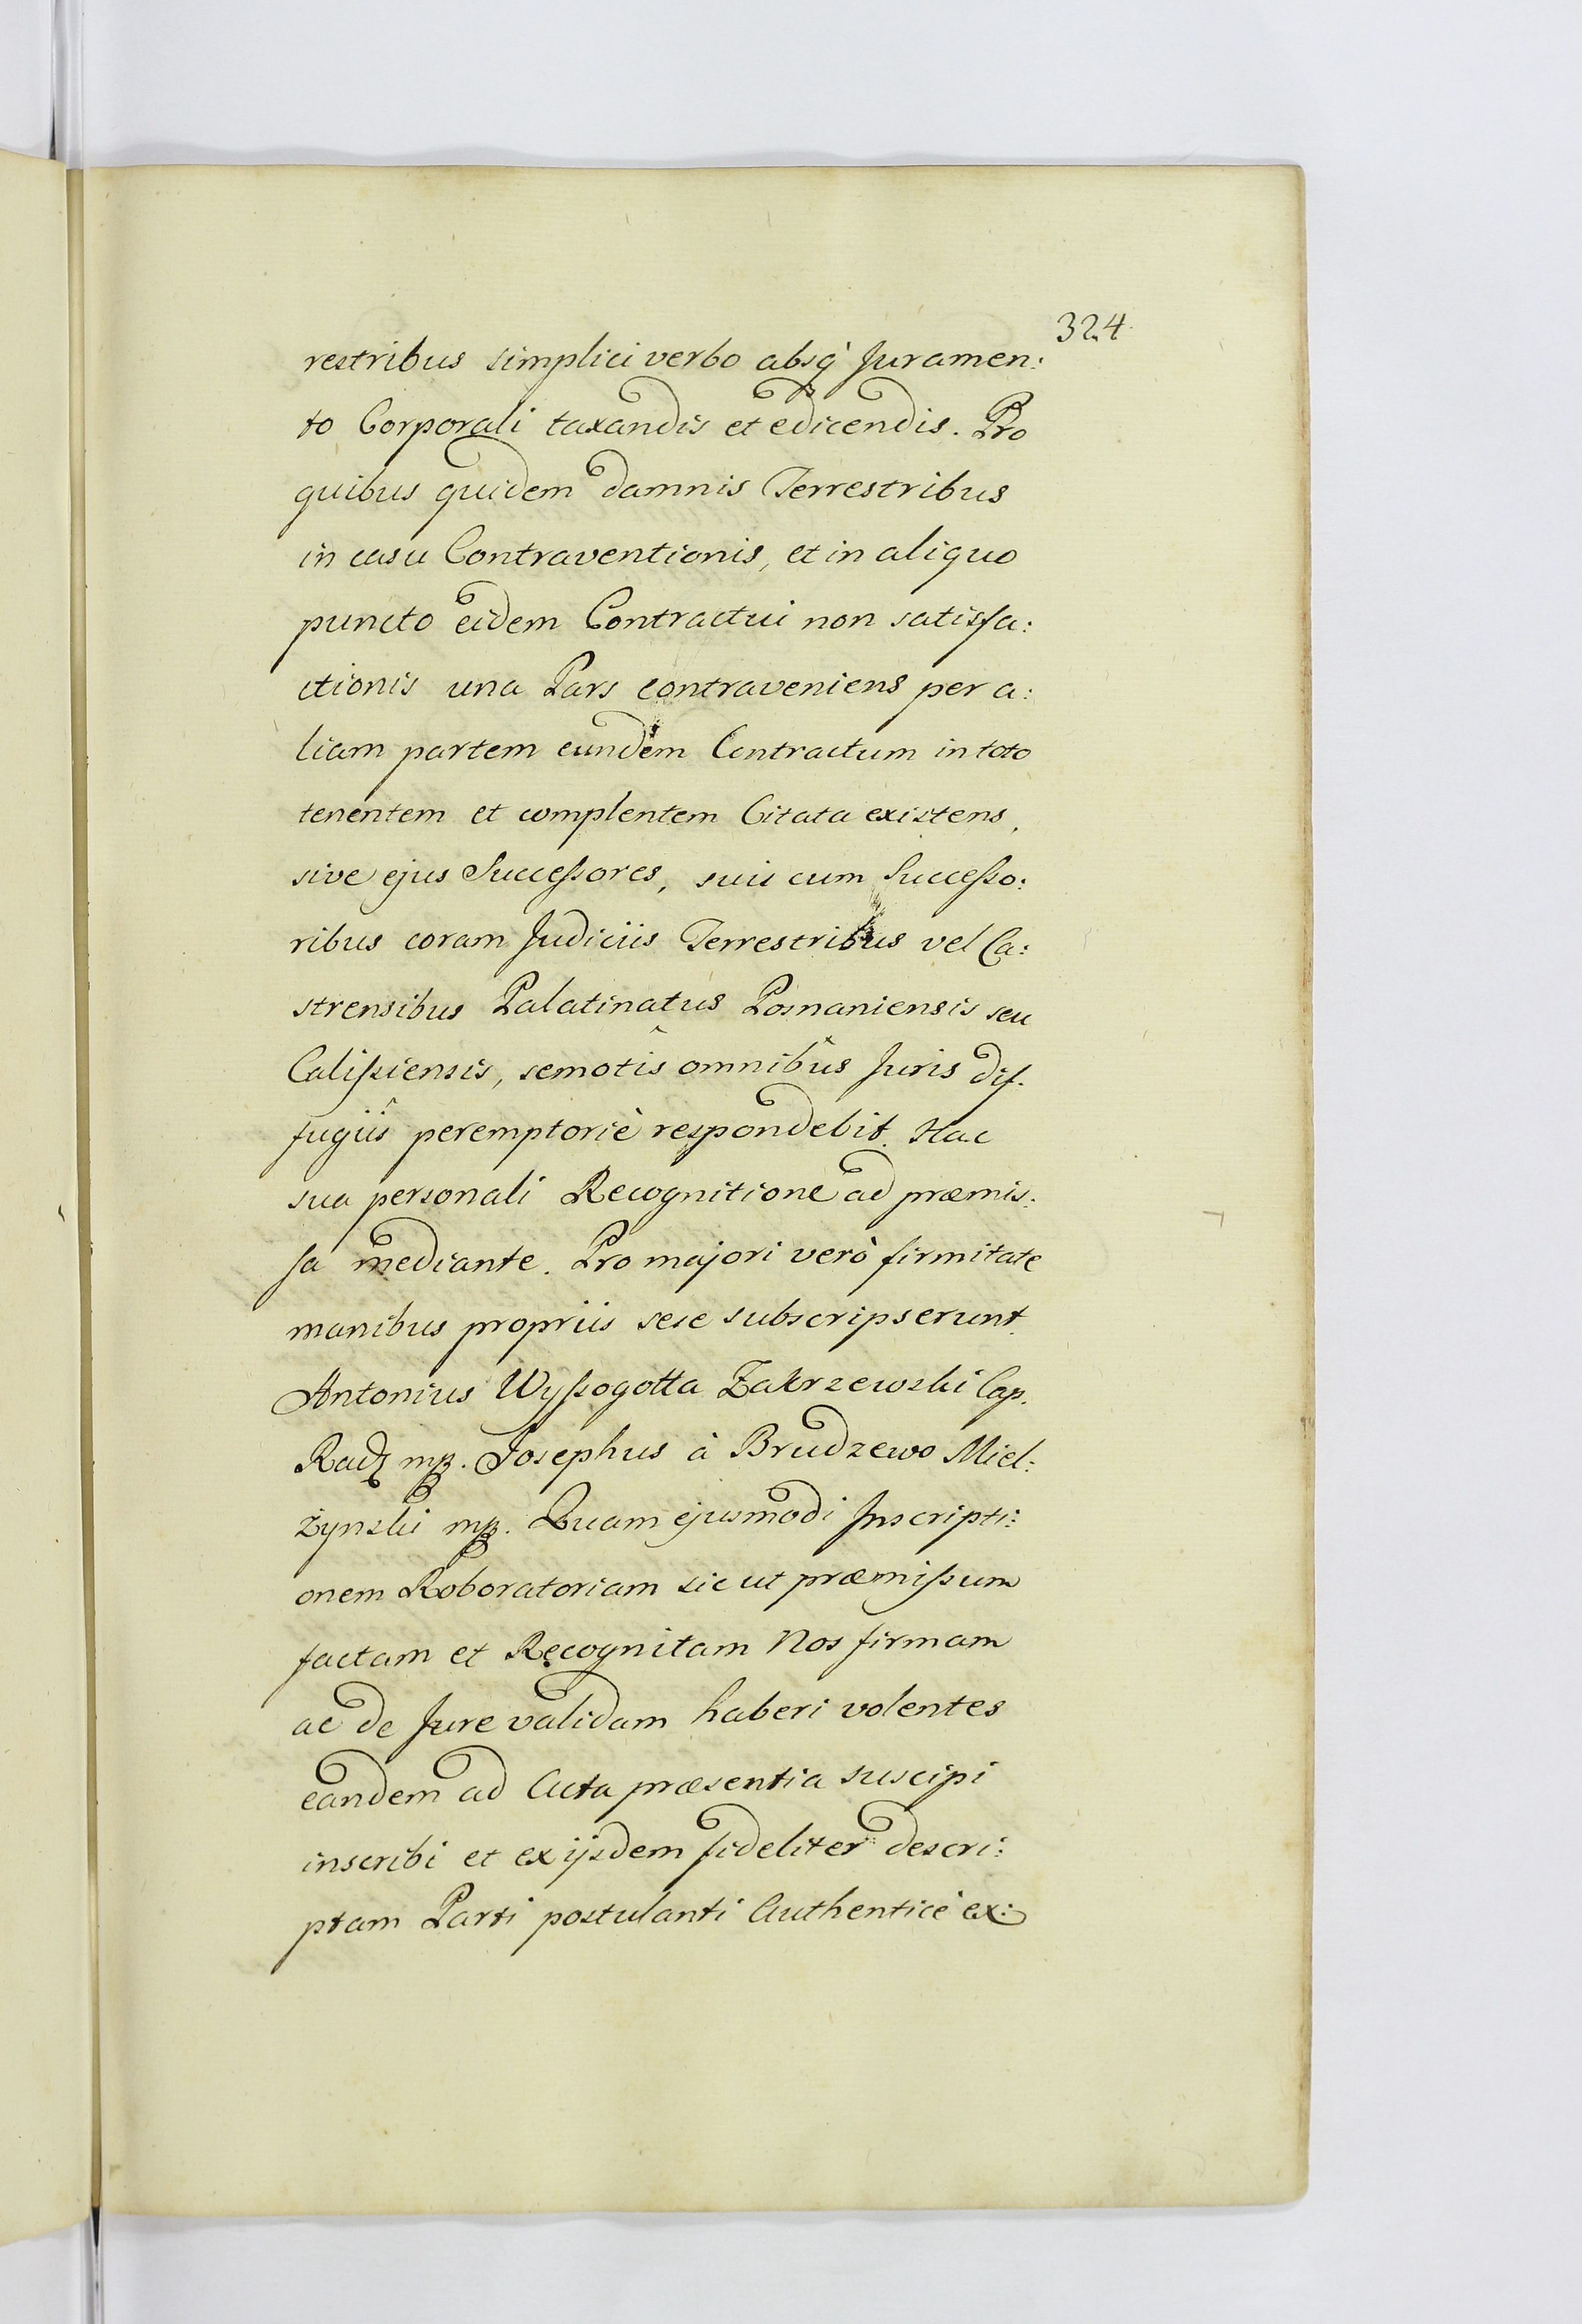 324
restribus simplici verbo absq̀ Juramen:
to Corporali taxandis et edicendis. Pro
quibus quidem damnis Terrestribus
in casu Contraventionis, et in aliquo
puncto eidem Contractui non satisfa:
ctionis una Pars contraveniens per a:
liam partem eundem Contractum in toto
tenentem et complentem Citata existens,
sive ejus Successores, suis cum Successo:
ribus coram Judiciis Terrestribus vel Ca:
strensibus Palatinatus Posnaniensis seu
Calissiensis, semotîs omnibûs Juris dif:
fugiîs peremptoriè respondebit. Hac
sua personali Recognitione ad præmis:
sa mediante. Pro majori verò firmitate
manibus propriis sese subscripserunt.
Antonius Wyssogotta Zakrzewski Cap.
Radz mp. Josephus à Brudzewo Miel:
żynski mp. Quam ejusmodi Inscripti:
onem Roboratoriam sic ut præmissum
factam et Recognitam Nos firmam
ac de Jure validam haberi volentes
eandem ad Acta præsentia suscipi
inscribi et ex ijsdem fideliter descri:
ptam Parti postulanti Authenticè ex: